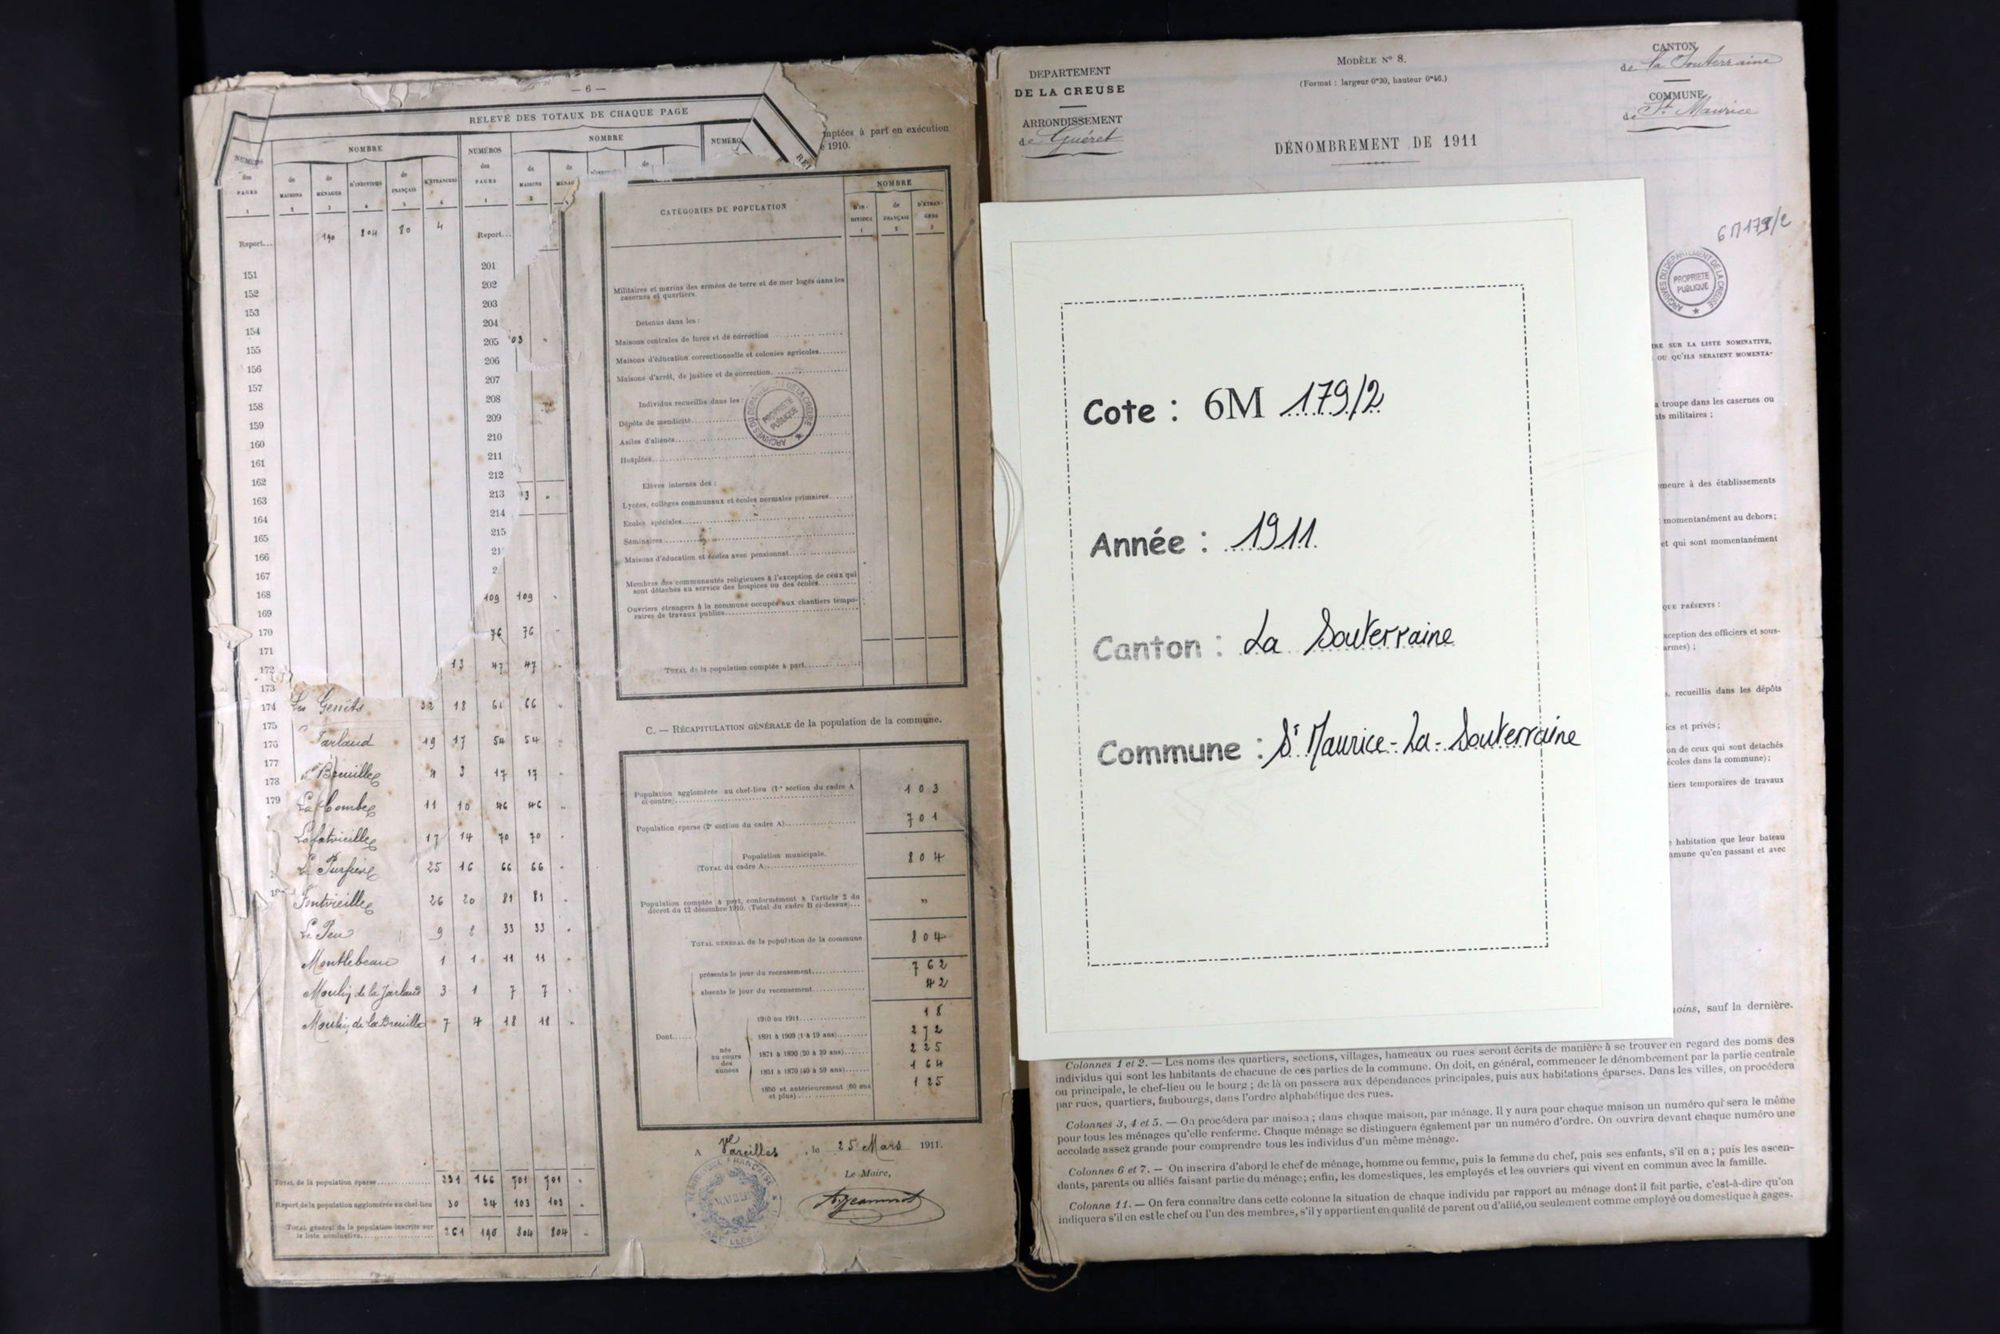 — 6 —
RELEVÉ DES TOTAUX DE CHAQUE PAGE
NUMÉROS des PAGES
NOMBRE
de MAISONS
de MÉNAGES
D'INDIVIDUS
de FRANÇAIS
D'ÉTRANGERS
NUMÉROS des PAGES
NOMBRE
de MAISONS
de
NUMÉRO
1 2 3 4 5 6 1 2
Report... 190 804 80 4 Report...
151 201
152 202
153 203
154 204
155 205 03
156 206
157 207
158 208
159 209
160 210
161 211
162 212
163 213
164 214
165 215
166 21
167 2
168 109 109
169
170 76 76
171
172 13 47 47
173
174 Les Genêts 32 18 66 66
175
176 Jarlaud 19 17 54 54
177 Breuille 4 3 17 17
178
179 La Combe 11 10 46 46
Lafatvieille 17 14 70 70
25 16 66 66
Fontvieille 26 20 81 81
Le Peu 9 8 33 33
Montlebeau 1 1 11 11
Moulin de la Jarlaud 3 1 7 7
Moulin de la Breuille 7 4 18 18
TOTAL de la population éparse 231 166 701 701
Report de la population agglomérée au chef-lieu 30 24 103 103
TOTAL général de la population inscrite sur la liste nominative 261 190 804 804
mptées à part en exécution
e 1910.
CATÉGORIES DE POPULATION
NOMBRE
D'IN-DIVIDUS
de FRANÇAIS
D'ÉTRAN-GERS
1 2 3
Militaires et marins des armées de terre et de mer logés dans les
casernes et quartiers.
Détenus dans les :
Maisons centrales de force et de correction
Maisons d'éducation correctionnelle et colonies agricoles
Maisons d'arrêt, de justice et de correction
Individus recueillis dans les :
Dépôts de mendicité
Asiles d'aliénés
Hospices
Elèves internes des :
Lycées, collèges communaux et écoles normales primaires
Ecoles spéciales
Séminaires
Maisons d'éducation et écoles avec pensionnat
Membres des communautés religieuses à l'exception de ceux qui
sont détachés au service des hospices ou des écoles
Ouvriers étrangers à la commune occupés aux chantiers tempo-
raires de travaux publics
TOTAL de la population comptée à part
ARCHIVES DU DÉPARTEMENT DE LA CREUSE
PROPRIÉTÉ PUBLIQUE
C. — RÉCAPITULATION GÉNÉRALE de la population de la commune.
Population agglomérée au chef-lieu (1re section du cadre A
ci-contre) 103
Population éparse (2e section du cadre A) 701
Population municipale.
(TOTAL du cadre A 804
Population comptée à part, conformément à l'article 2 du
décret du 12 décembre 1910. (Total du cadre B ci-dessus) "
TOTAL GÉNÉRAL de la population de la commune 804
Dont
présents le jour du recensement 762
absents le jour du recensement 42
nés au cours des années
1910 ou 1911 18
1891 à 1909 (1 à 19 ans) 272
1871 à 1890 (20 à 39 ans) 225
1851 à 1870 (40 à 59 ans) 164
1850 et antérieurement (60 ans
et plus) 125
A Vareilles, le 25 Mars 1911.
Le Maire,
DÉPARTEMENT
DE LA CREUSE
ARRONDISSEMENT
de Guéret
MODÈLE N° 8.
(Format : largeur 0m30, hauteur 0m46.)
DÉNOMBREMENT DE 1911
CANTON
de La Souterraine
COMMUNE
de St Maurice
6M179/2
ARCHIVES DU DÉPARTEMENT DE LA CREUSE
PROPRIÉTÉ PUBLIQUE
Cote : 6M 179/2
Année : 1911
Canton : La Souterraine
Commune : St Maurice-La-Souterraine
RE SUR LA LISTE NOMINATIVE,
OU QU'ILS SERAIENT MOMENTA-
a troupe dans les casernes ou
nts militaires ;
meure à des établissements
momentanément au dehors;
et qui sont momentanément
QUE PRÉSENTS :
xception des officiers et sous-
armes) ;
s, recueillis dans les dépôts
ics et privés ;
on de ceux qui sont détachés
écoles dans la commune);
tiers temporaires de travaux
e habitation que leur bateau
mmune qu'en passant et avec
moins, sauf la dernière.
Colonnes 1 et 2. — Les noms des quartiers, sections, villages, hameaux ou rues seront écrits de manière à se trouver en regard des noms des
individus qui sont les habitants de chacune de ces parties de la commune. On doit, en général, commencer le dénombrement par la partie centrale
ou principale, le chef-lieu ou le bourg ; de là on passera aux dépendances principales, puis aux habitations éparses. Dans les villes, on procédera
par rues, quartiers, faubourgs, dans l'ordre alphabétique des rues.
Colonnes 3, 4 et 5. — On procédera par maison ; dans chaque maison, par ménage. Il y aura pour chaque maison un numéro qui sera le même
pour tous les ménages qu'elle renferme. Chaque ménage se distinguera également par un numéro d'ordre. On ouvrira devant chaque numéro une
accolade assez grande pour comprendre tous les individus d'un même ménage.
Colonnes 6 et 7. — On inscrira d'abord le chef de ménage, homme ou femme, puis la femme du chef, puis ses enfants, s'il en a ; puis les ascen-
dants, parents ou alliés faisant partie du ménage; enfin, les domestiques, les employés et les ouvriers qui vivent en commun avec la famille.
Colonne 11. — On fera connaître dans cette colonne la situation de chaque individu par rapport au ménage dont il fait partie, c'est-à-dire qu'on
indiquera s'il en est le chef ou l'un des membres, s'il y appartient en qualité de parent ou d'allié, ou seulement comme employé ou domestique à gages.